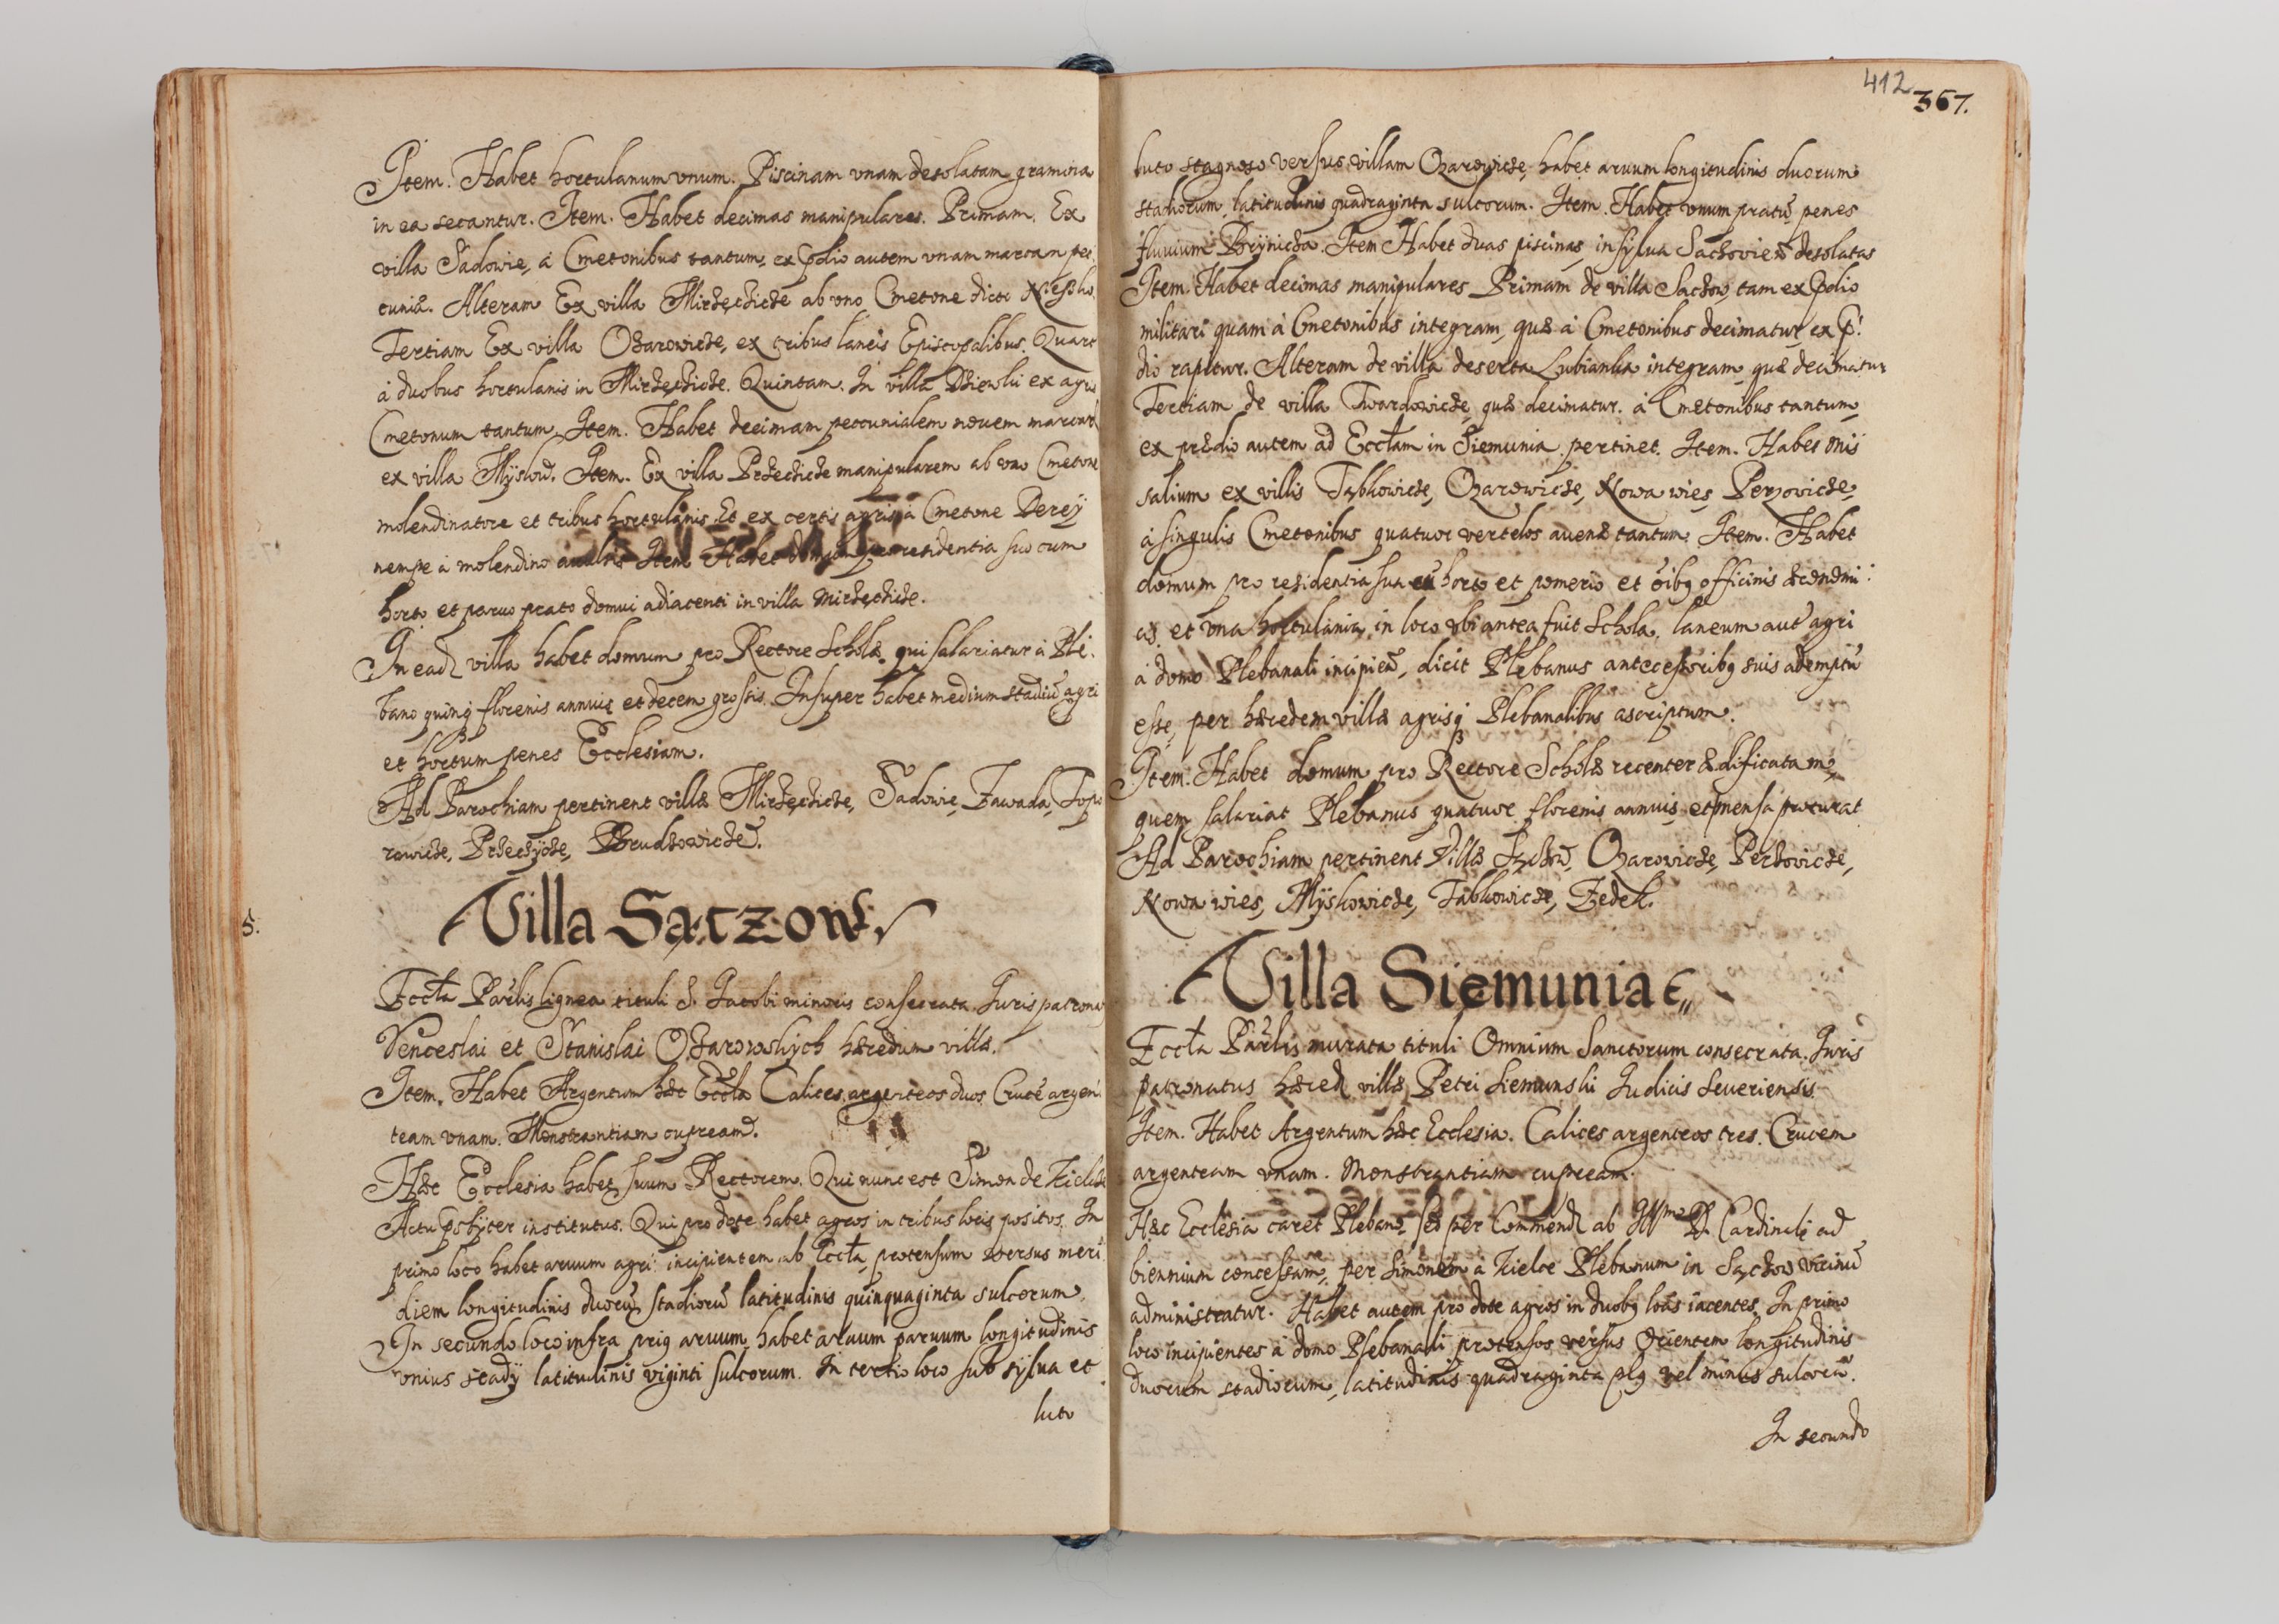 Item. Habet hortulanum vnum. Piscinam vnam desolatam gramina
in ea secantur. Item. Habet decimas manipulares. Primam. Ex
villa Sadowie, à Cmetonibus tantum, ex p̃dio autem vnam marcam pec
cuniæ. Alteram Ex villa Mirzęczicze ab vno Cmetone dicto
Tertiam Ex villa Ozarowicze, ex tribus laneis Episcopalibus. Quart
à duobus hortulanis in Mirzęczicze. Quintam. In villa ex agris
Cmetonum tantum. Item. Habet decimam peccunialem nouem marcarũ
ex villa Mÿskow. Item. Ex villa Przeczicze manipularem ab vno Cmetone
molendinatore et tribus hortulanis. Et ex certis agris à Cmetone
nempe à molendino Item Habet domum pro residentia suo cum
horto et paruo prato domui adiacenti in villa Mirzęczicze.
In ead villa habet domum pro Rectore Scholæ, qui salariatur à Ple:
bano quinq florenis annuis et decem grossis. Insuper habet medium stadiũ agri
et hortum penes Ecclesiam.
Ad Parochiam pertinent villæ Mirzęczicze, Sadowie, Zawada, Topo
rowicze, Przeczÿcze,
Villa Sączow
5.
Eccła Par̃lis lignea tituli S. Jacobi minoris consecrata. Juris patrona
Venceslai et Stanislai Ozarowskych hæredum villæ.
Item. Habet Argentum hæc Eccła Calices argenteos duos. Crucẽ argen:
team vnam. Monstrantiam cupream.
Hæc Ecclesia habet suum Rectorem. Qui nunc est Simon de
Actu Pr̃sbÿter institutus. Qui pro dote habet agros in tribus locis positos. In
primo loco habet aruum agri incipientem ab Eccła, protensum versus meri:
diem longitudinis duorũ stadiorũ latitudinis quinquaginta sulcorum.
In secundo loco infra priq aruum, habet aruum paruum longitudinis
vnius stadÿ latitudinis viginti sulcorum. In tertio loco sub sÿlua et
luto
412
367.
luto stagnoso versus villam Ozarowicze, habet aruum longitudinis duorum
stadiorum, latitudinis quadraginta sulcorum. Item. Habet vnum pratũ penes
fluuium Brÿnicza. Item Habet duas piscinas in sÿlua desolatas
Item Habet decimas manipulares Primam de villa Sączow, tam ex p̃dio
militari quam à Cmetonibus integram, quæ à Cmetonibus decimatur, ex p̃:
dio rapitur. Alteram de villa deserta Lubianka integram, quæ decimatur
Tertiam de villa Twardowicze, quæ decimatur. à Cmetonibus tantum,
ex prædio autem ad Eccłam in Siemunia pertinet. Item. Habet mis
salium ex villis Tąbkowicze, Ozarowicze, Nowa wies, Perzowicze,
à singulis Cmetonibus quatuor vertelos auenæ tantum. Item. Habet
domum pro residentia sua cũ horto et pomerio et õibq officinis æconomi:
cis, et vna hortulania, in loco vbi antea fuit Schola, laneum aut agri
à domo Plebanali incipien̄, dicit Plebanus antecessoribq suis ademptũ
esse, per hæredem villæ agrisq Plebanalibus ascriptum.
Item. Habet domum pro Rectore Scholæ recenter ædificatam,
quem salariat Plebanus quatuor florenis annuis, et mensa procurat.
Ad Parochiam pertinent Villæ Sączow, Ozarowicze, Perzowicze,
Nowa wies, Mÿskowicze, Tąbkowicze, Zedek.
Villa Siemunia
Eccła Par̃lis murata tituli Omnium Sanctorum consecrata. Juris
patronatus hæred villæ, Petri Siemunski Judicis Seueriensis.
Item. Habet Argentum hæc Ecclesia. Calices argenteos tres. Crucem
argenteam vnam. Monstrantiam cupream.
Hæc Ecclesia caret Plebano, sed per Commend ab Illmo D. Cardinali ad
biennium concessam, per Simonem à Kielce Plebanum in Sączow vicinũ
administratur. Habet autem pro dote agros in duobq locis iacentes. In primo
loco incipientes à domo Plebanali protensos versus Orientem longitudinis
duorum stadiorum, latitudinis quadraginta plq vel minus sulcorũ.
In secundo